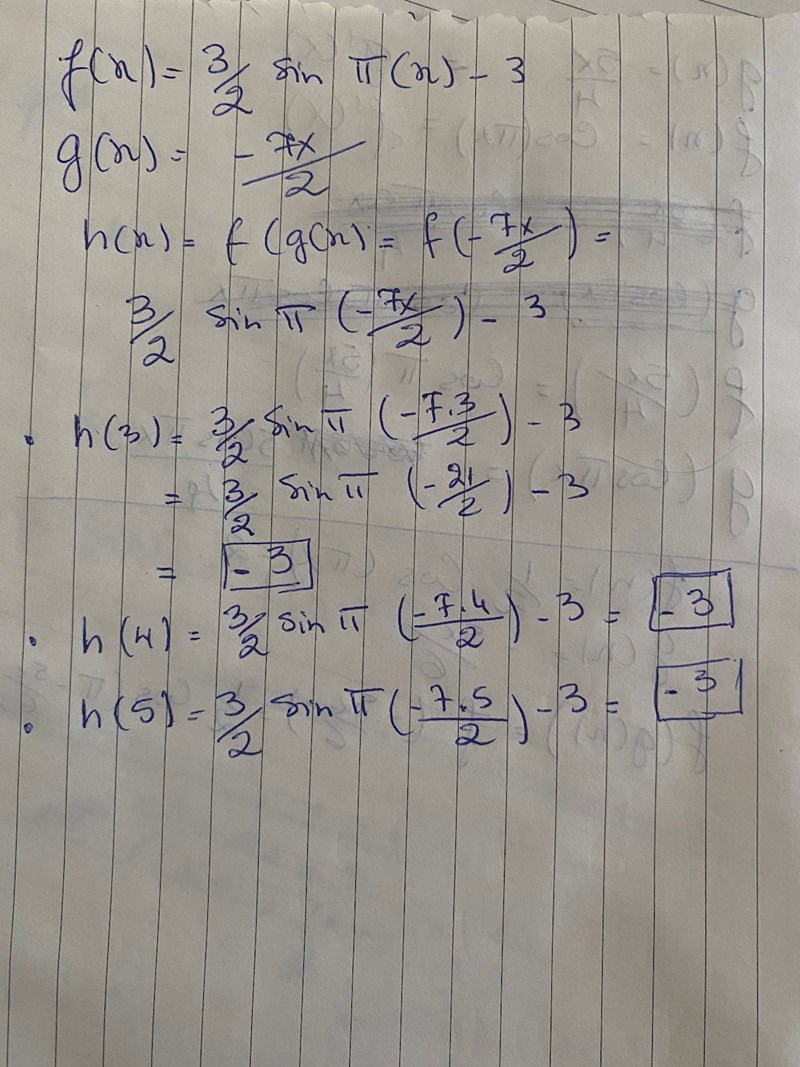 f(x) = 3/2 sin π(x) - 3
g(x) = -7x/2
h(x) = f(g(x) = f(-7x/2) =
3/2 sin π (-7x/2) - 3
• h(3) = 3/2 sin π (-7.3/2) - 3
= 3/2 sin π (-21/2) - 3
= -3
• h(4) = 3/2 sin π (-7.4/2) - 3 = -3
• h(5) = 3/2 sin π (-7.5/2) - 3 = -3